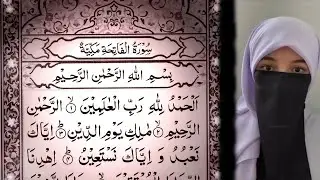 سُوْرَةُ الْفَاتِحَةِ مَكِّيَّةٌ
بِسْمِ اللّٰهِ الرَّحْمٰنِ الرَّحِيْمِ
اَلْحَمْدُ لِلّٰهِ رَبِّ الْعٰلَمِيْنَ ۝١ الرَّحْمٰنِ
الرَّحِيْمِ ۝٢ مٰلِكِ يَوْمِ الدِّيْنِ ۝٣ اِيَّاكَ
نَعْبُدُ وَ اِيَّاكَ نَسْتَعِيْنُ ۝٤ اِهْدِنَا